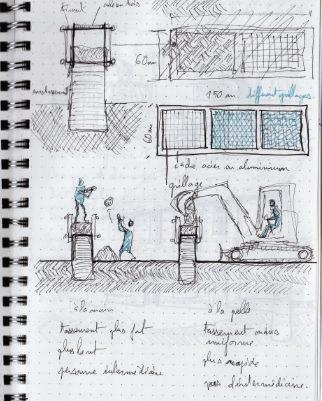 ciment
60 cm
150 cm
différent grillages
60 cm
cadre acier ou aluminium
grillage
à la main
tassement plus fort
plus lent
personne intermédiaire
à la pelle
tassement moins
uniforme
plus rapide
pas d'intermédiaire.